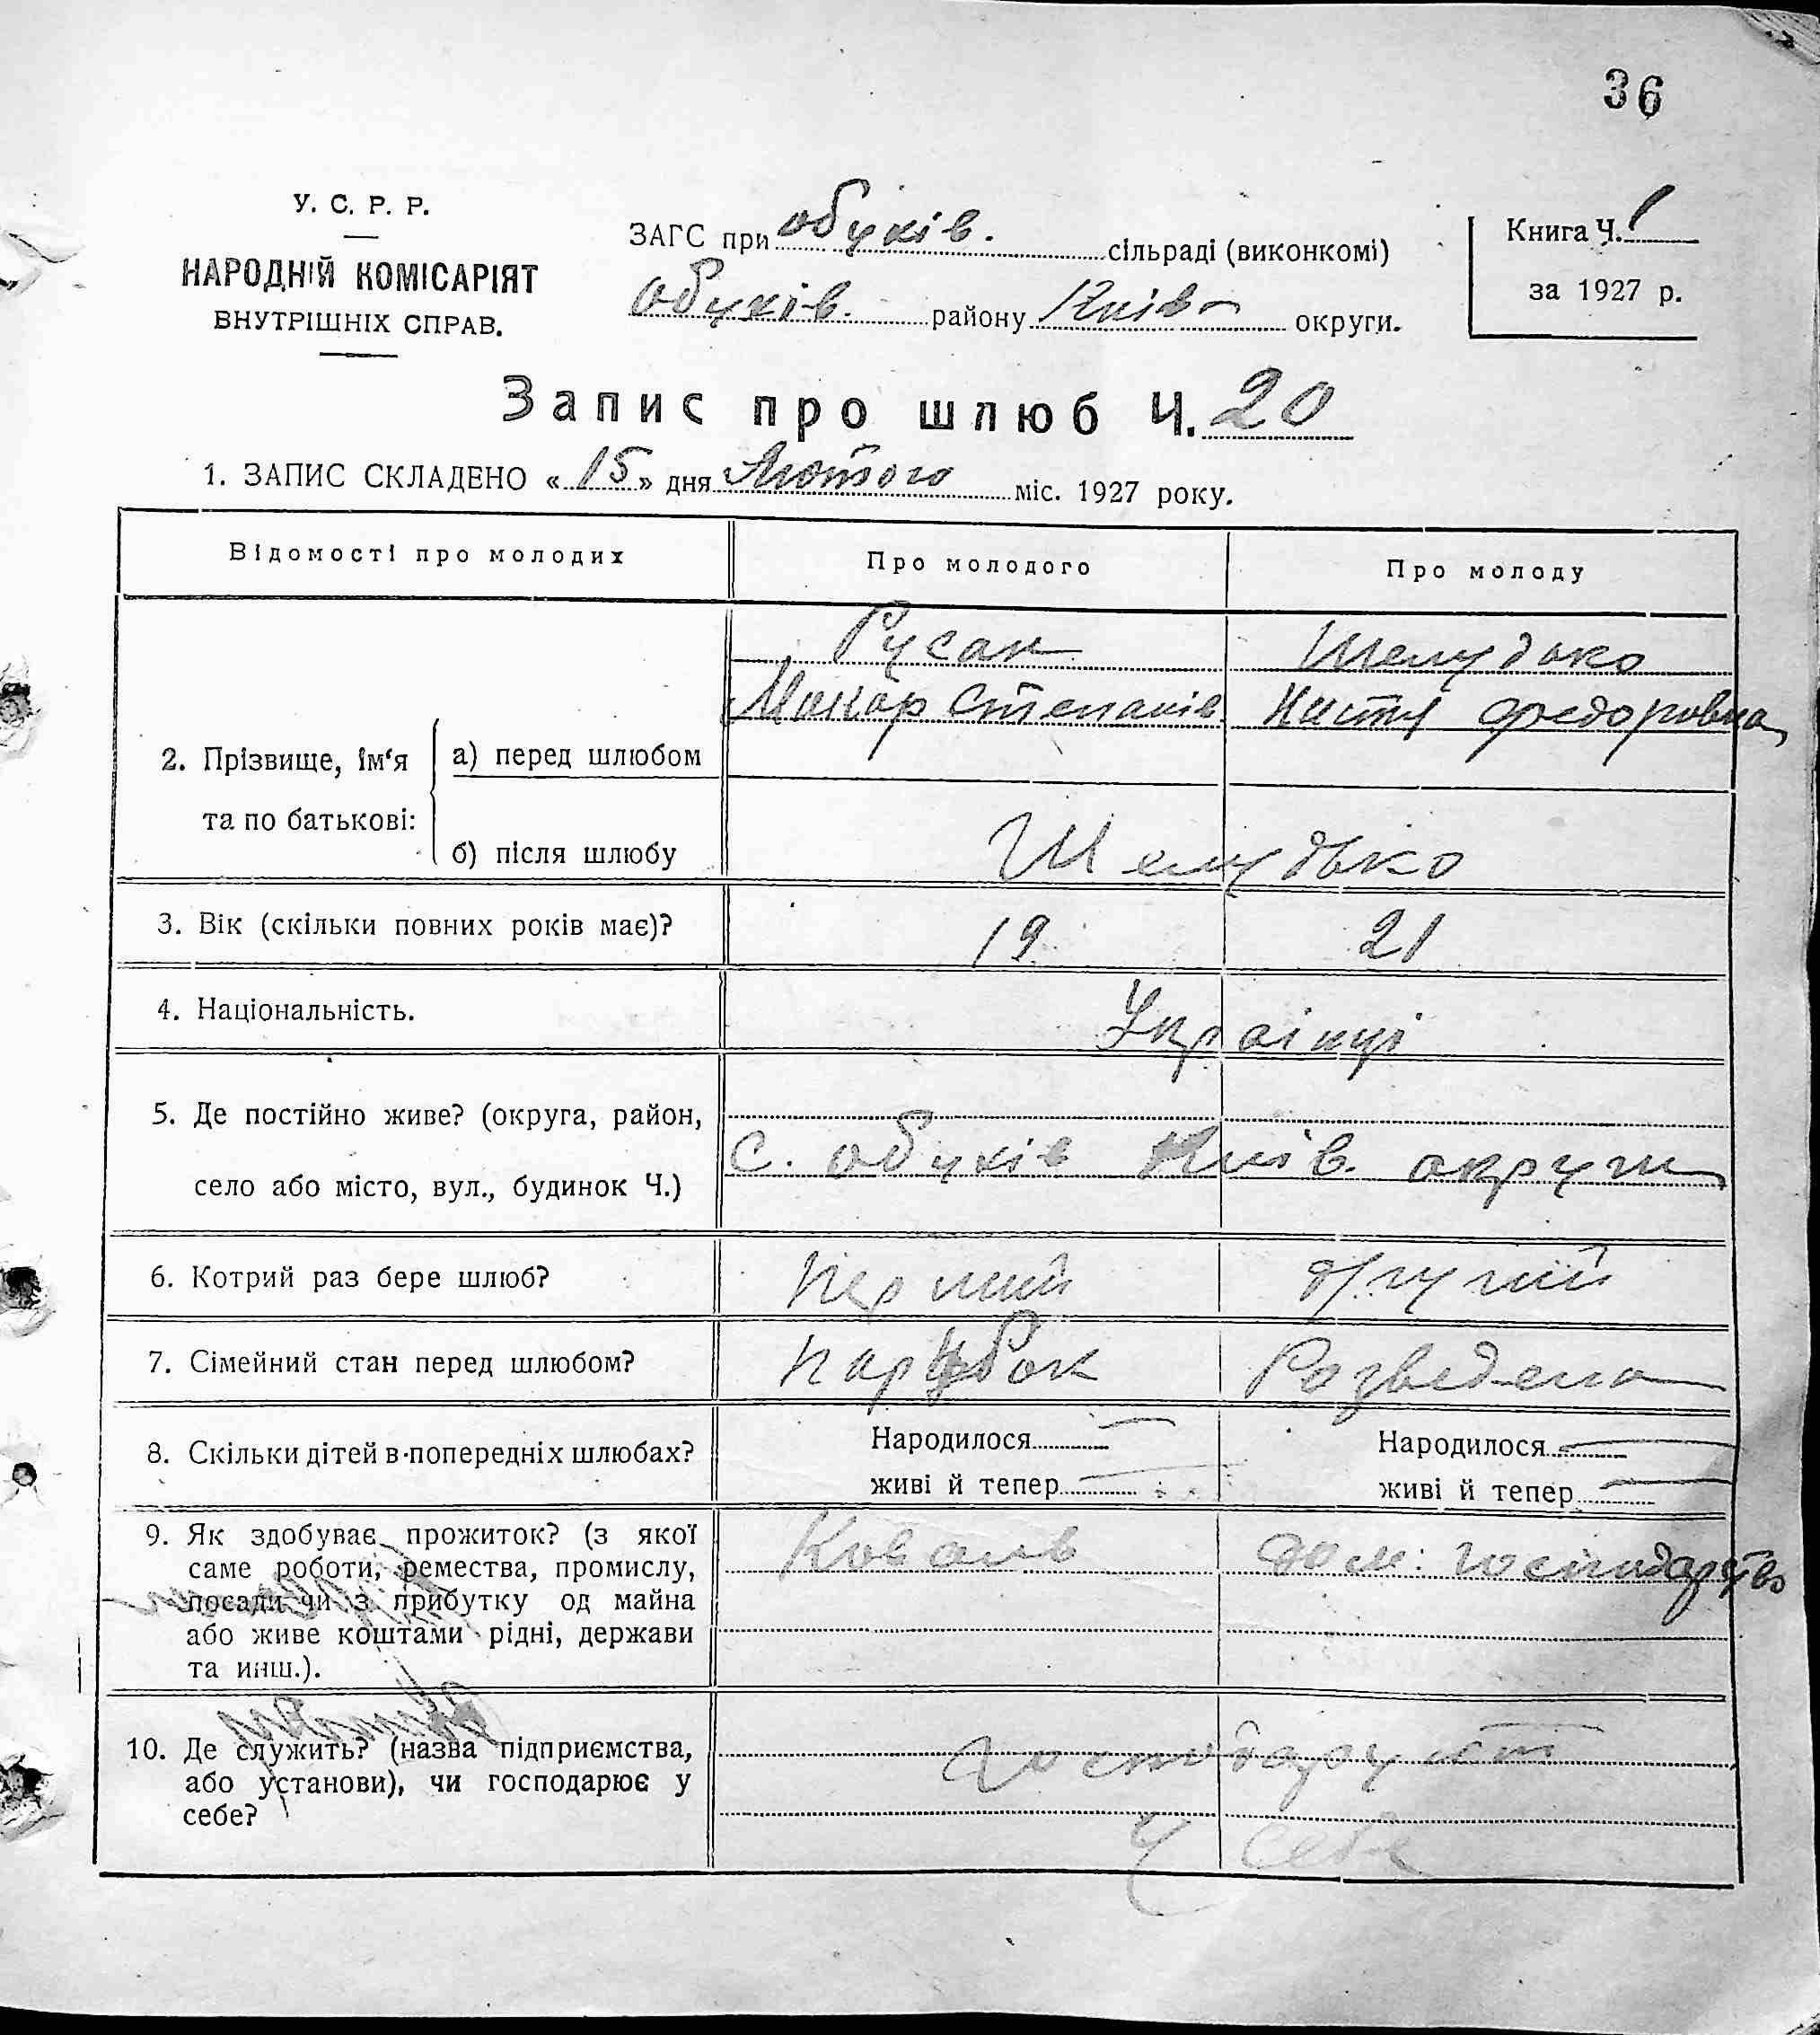 36
У. С. Р. Р.
НАРОДНІЙ КОМІСАРІЯТ
ВНУТРІШНІХ СПРАВ.
ЗАГС при Обухів. сільраді (виконкомі)
Обухів. району Київ округи.
Книга Ч. 1
за 1927 р.
Запис про шлюб Ч. 20
1. ЗАПИС СКЛАДЕНО «15» дня Лютого міс. 1927 року.
Відомості про молодих Про молодого Про молоду
Русан Шелудько
Макар Степанів Настя Федоровна
2. Прізвище, ім‘я та по батькові:
а) перед шлюбом
б) після шлюбу Шелудько
3. Вік (скільки повних років має)? 19 21
4. Національність. Українці
5. Де постійно живе? (округа, район,
село або місто, вул., будинок Ч.) с. Обухів Київ. округи
6. Котрий раз бере шлюб? перший другий
7. Сімейний стан перед шлюбом? парубок Розведена
8. Скільки дітей в попередніх шлюбах? Народилося — Народилося —
живі й тепер — живі й тепер —
9. Як здобуває прожиток? (з якої Коваль дом: господарство
саме роботи, ремества, промислу,
посади чи з прибутку од майна
або живе коштами рідні, держави
та инш.).
10. Де служить? (назва підприємства, господарують
або установи), чи господарює у
себе? у себе